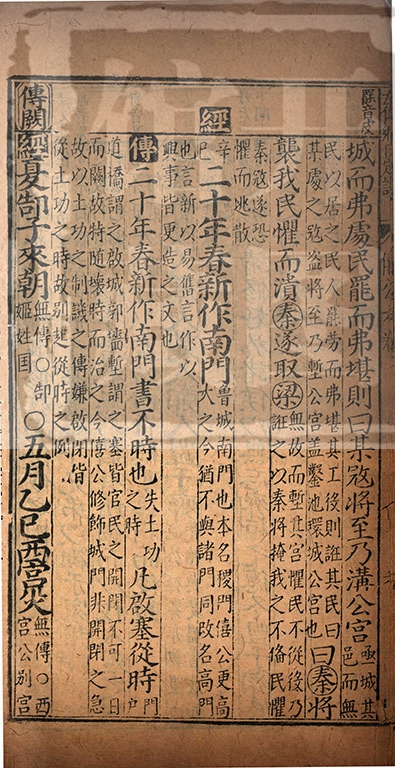 罷音皮
城而弗處民罷而弗堪則曰某寇將至乃溝公宮亟城其邑而無
民以居之民人罷勞而弗堪其工役則誑其民曰
某處之寇盗將至乃塹公宮盖鑿池環城公宮也曰秦將
襲我民懼而潰秦遂取梁無故而塹其宮懼民不從後乃
誑之以秦將掩我之不俻民懼
秦寇遂恐
懼而逃散
經辛巳二十年春新作南門魯城南門也本名稷門僖公更高
大之今猶不與諸門同改名高門
也言新以易舊言作以
興事皆更造之文也
傳二十年春新作南門書不時也失土功之時凡啟塞從時門戶
道橋謂之啟城郭墻塹謂之塞皆官民之開閉不可一日
而闕故特隨壞時而治之今僖公修飾城門非開閉之急
故以土功之制譏之傳嫌啟閉皆
從土功之時故别起從時之例
傳闕經夏郜子來朝無傳○郜姬姓国○五月乙巳西宮災無傳○西宮公别宮